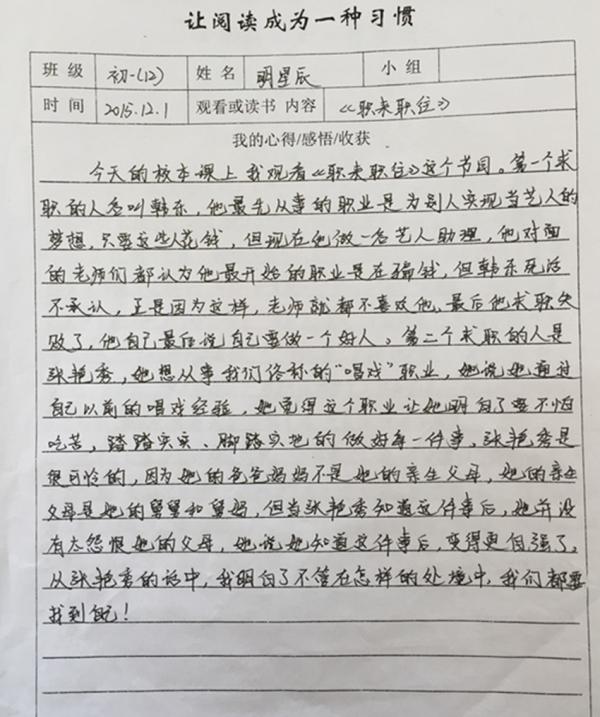 让阅读成为一种习惯
班级 初一(12) 姓名 明星辰 小组
时间 2015.12.1 观看或读书 内容 《职来职往》
我的心得/感悟/收获
今天的校本课上我观看《职来职往》这个节目。第一个求
职的人名叫韩东,他最先从事的职业是为别人实现当艺人的
梦想,只要这些人花钱,但现在他做一名艺人助理,他对面
的老师们都认为他最开始的职业是在骗钱,但韩东死活
不承认,正是因为这样,老师就都不喜欢他,最后他求职失
败了,他自己最后说自己要做一个好人。第二个求职的人是
张艳秀,她想从事我们俗称的“唱戏”职业,她说她通过
自己以前的唱戏经验,她觉得这个职业让她明白了要不怕
吃苦,踏踏实实、脚踏实地的做好每一件事,张艳秀是
很可怜的,因为她的爸爸妈妈不是她的亲生父母,她的亲生
父母是她的舅舅和舅妈,但当张艳秀知道这件事后,她并没
有太怨恨她的父母,她说她知道这件事后,变得更自强了。
从张艳秀的话中,我明白了不管在怎样的处境中,我们都要
找到自己!